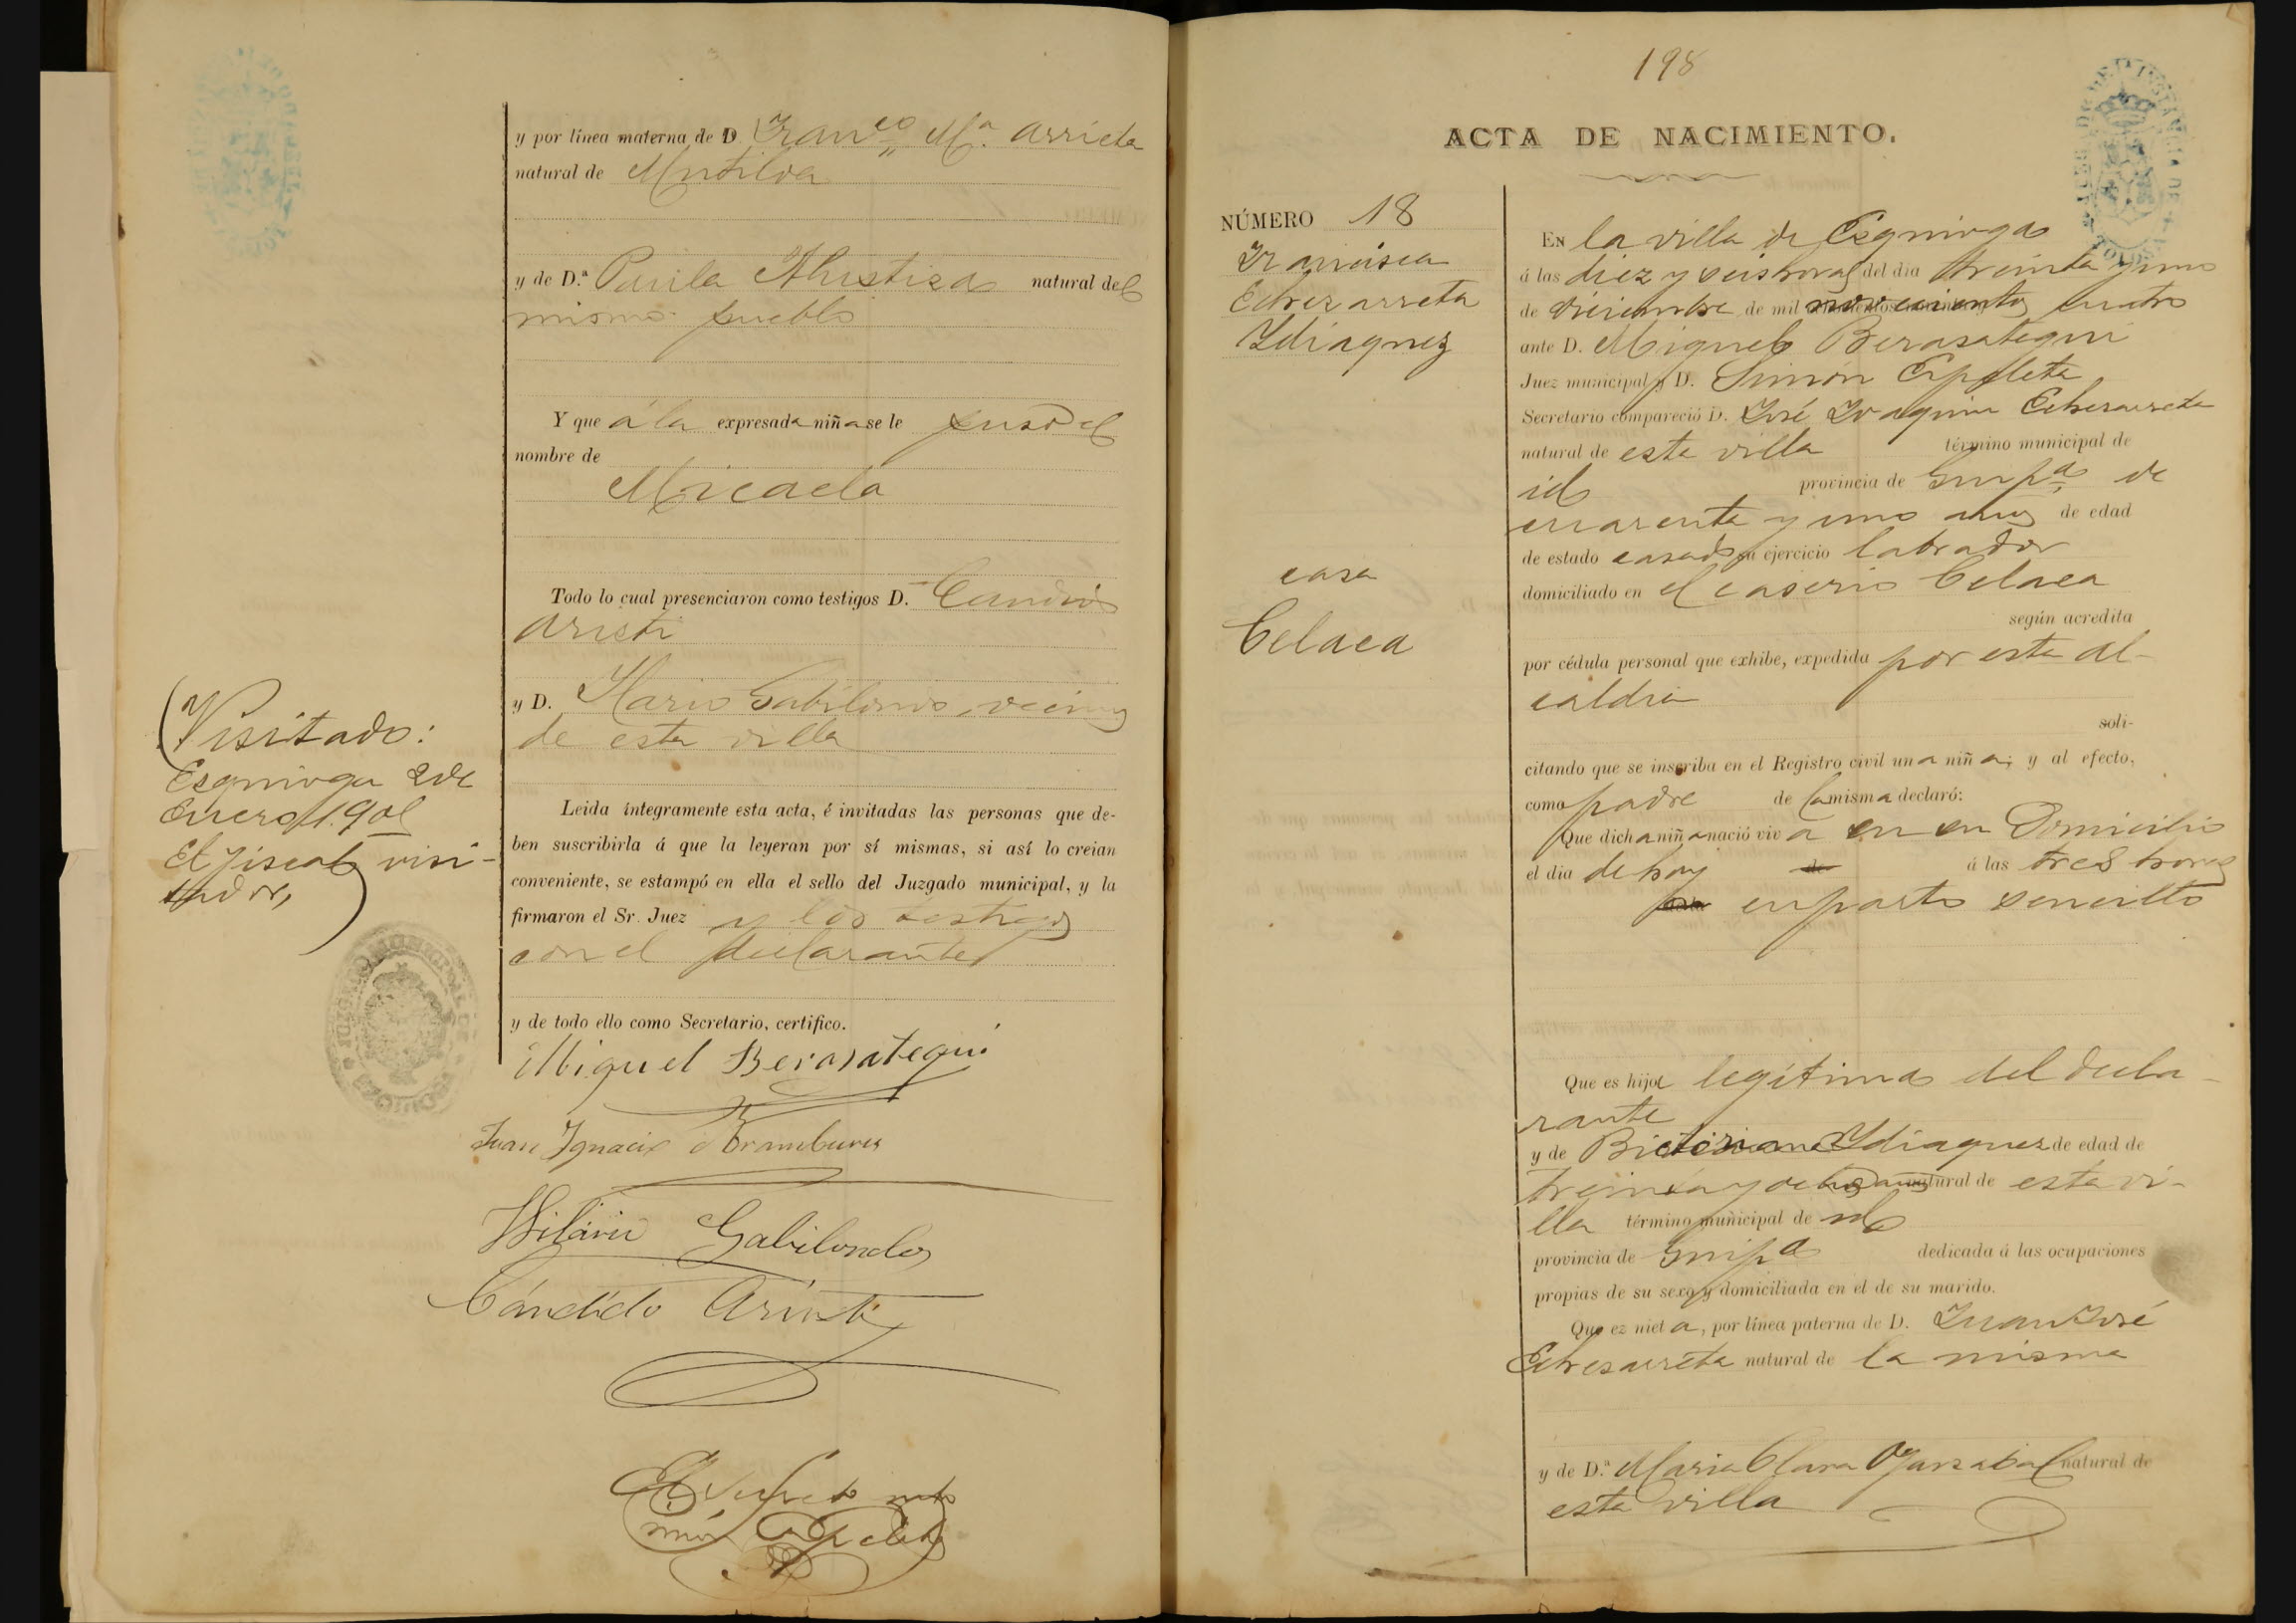 y por línea materna de D Franco Ma. Arrieta
natural de Mutiloa
y de D.ª Paula natural del
mismo pueblo
Y que á la expresada niña se le puso el
nombre de
Micaela
Todo lo cual presenciaron como testigos D. Candido
Aristi
y D. Ilario Gabilondo, vecinos
de esta villa
Visitado:
Esquioga 2 de
Enero 1905
El Fiscal visi-
tador,
Leida íntegramente esta acta, é invitadas las personas que de-
ben suscribirla á que la leyeran por sí mismas, si así lo creian
conveniente, se estampó en ella el sello del Juzgado municipal, y la
firmaron el Sr. Juez y los testigos
con el declarante
y de todo ello como Secretario, certifico.
Miguel Berasategui
Juan Ignacio Aramburu
Hilario Gabilondo
Cándido Aristi
198
ACTA DE NACIMIENTO.
NÚMERO 18
Francisca
Echezarreta
Ydiaquez
casa
Celaea
En la villa de Esquioga
á las diez y seis horas del dia treinta y uno
de diciembre de mil novecientos cuatro
ante D. Miguel Berasategui
Juez municipal y D. Simón Ezpeleta
Secretario compareció D. José Joaquin Echezarreta
natural de esta villa término municipal de
id provincia de Guipa de
cuarenta y uno años de edad
de estado casado su ejercicio labrador
domiciliado en el caserio Celaea
según acredita
por cédula personal que exhibe, expedida por esta al-
caldia
soli-
citando que se inscriba en el Registro civil una niña; y al efecto,
como padre de la misma declaró:
Que dicha niña nació viva en su Domicilio
el dia de hoy de á las tres horas
en parto sencillo
Que es hija legítima del decla-
rante
y de Bictoriana Ydiaquez de edad de
treinta y ocho años natural de esta vi-
lla término municipal de id
provincia de Guipa dedicada á las ocupaciones
propias de su sexo y domiciliada en el de su marido.
Que es nieta, por línea paterna de D. Juan José
Echezarreta natural de la misma
y de D.ª Maria Clara Oyarzabal natural de
esta villa